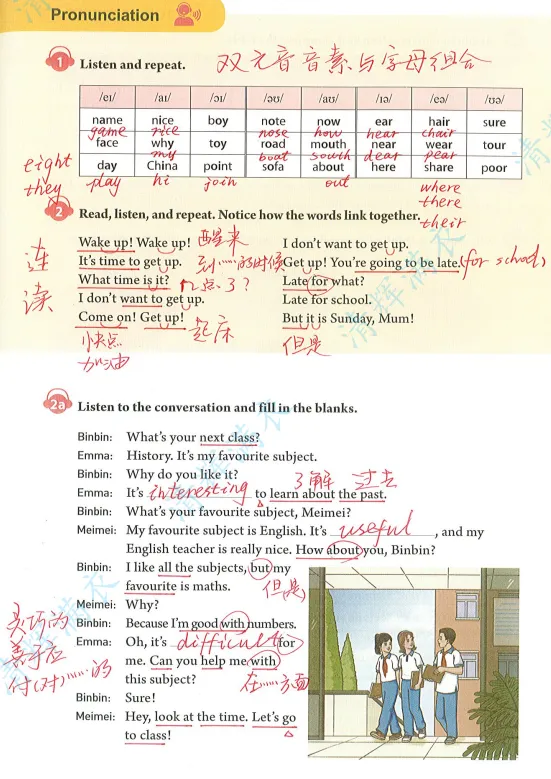 Pronunciation
1 Listen and repeat. 双元音音素与字母组合
/eɪ/ /aɪ/ /ɔɪ/ /əʊ/ /aʊ/ /ɪə/ /eə/ /ʊə/
name nice boy note now ear hair sure
game rice nose how hear chair
face why toy road mouth near wear tour
eight my boat south dear pear
day China point sofa about here share poor
they play hi join out where
there
2 Read, listen, and repeat. Notice how the words link together. their
连读
Wake up! Wake up! 醒来 I don't want to get up.
It's time to get up. 到……的时候 Get up! You're going to be late. (for school)
What time is it? 几点了? Late for what?
I don't want to get up. Late for school.
Come on! Get up! 起床 But it is Sunday, Mum!
快点 但是
加油
2a Listen to the conversation and fill in the blanks.
Binbin: What's your next class?
Emma: History. It's my favourite subject.
Binbin: Why do you like it? 了解 过去
Emma: It's interesting to learn about the past.
Binbin: What's your favourite subject, Meimei?
Meimei: My favourite subject is English. It's useful, and my
English teacher is really nice. How about you, Binbin?
Binbin: I like all the subjects, but my
favourite is maths. 但是
Meimei: Why?
Binbin: Because I'm good with numbers.
灵巧的
善于应付(对)……的
Emma: Oh, it's difficult for
me. Can you help me with
this subject? 在……方面
Binbin: Sure!
Meimei: Hey, look at the time. Let's go
to class!
清辉满衣
清辉满衣
清辉满衣
清辉满衣